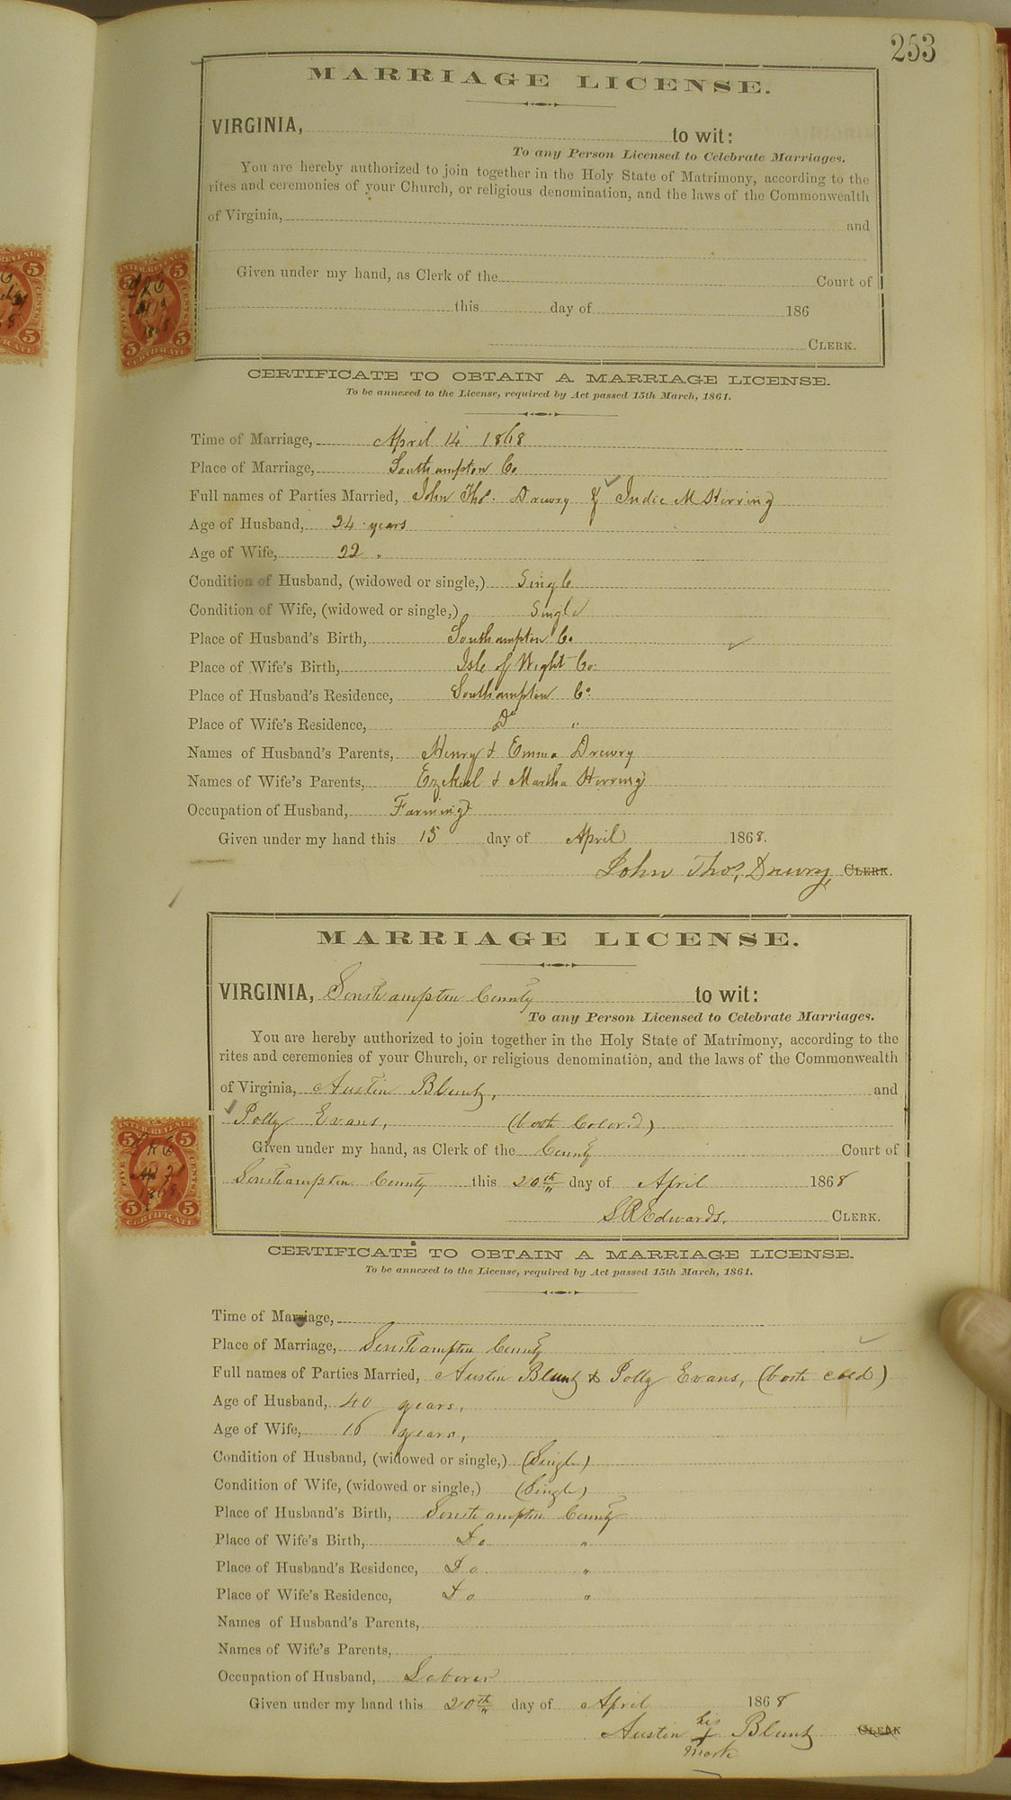 253
MARRIAGE LICENSE.
VIRGINIA, to wit:
To any Person Licensed to Celebrate Marriages.
You are hereby authorized to join together in the Holy State of Matrimony, according to the
rites and ceremonies of your Church, or religious denomination, and the laws of the Commonwealth
of Virginia, and
Given under my hand, as Clerk of the Court of
this day of 186
CLERK.
CERTIFICATE TO OBTAIN A MARRIAGE LICENSE.
To be annexed to the License, required by Act passed 15th March, 1861.
Time of Marriage, April 14 1868
Place of Marriage, Southampton Co
Full names of Parties Married, John Thos. Drewry & Indie M Herring
Age of Husband, 24 years
Age of Wife, 22 "
Condition of Husband, (widowed or single,) Single
Condition of Wife, (widowed or single,) Single
Place of Husband's Birth, Southampton Co
Place of Wife's Birth, Isle of Wight Co.
Place of Husband's Residence, Southampton Co
Place of Wife's Residence, Do "
Names of Husband's Parents, Henry & Emma Drewry
Names of Wife's Parents, Ezekiel & Martha Herring
Occupation of Husband, Farming
Given under my hand this 15 day of April 1868.
John Thos. Drewry, CLERK.
MARRIAGE LICENSE.
VIRGINIA, Southampton County to wit:
To any Person Licensed to Celebrate Marriages.
You are hereby authorized to join together in the Holy State of Matrimony, according to the
rites and ceremonies of your Church, or religious denomination, and the laws of the Commonwealth
of Virginia, Austin Blunt, and
Polly Evans, (both Colored)
Given under my hand, as Clerk of the County Court of
Southampton County this 20th day of April 1868
S.R Edwards. CLERK.
CERTIFICATE TO OBTAIN A MARRIAGE LICENSE.
To be annexed to the License, required by Act passed 15th March, 1861.
Time of Marriage,
Place of Marriage, Southampton County
Full names of Parties Married, Austin Blunt & Polly Evans, (both cold)
Age of Husband, 40 years,
Age of Wife, years,
Condition of Husband, (widowed or single,) (Single)
Condition of Wife, (widowed or single,) (Single)
Place of Husband's Birth, Southampton County
Place of Wife's Birth, Do "
Place of Husband's Residence, Do "
Place of Wife's Residence, Do "
Names of Husband's Parents,
Names of Wife's Parents,
Occupation of Husband, Laborer
Given under my hand this 20th day of April 1868
Austin his Blunt CLERK
mark